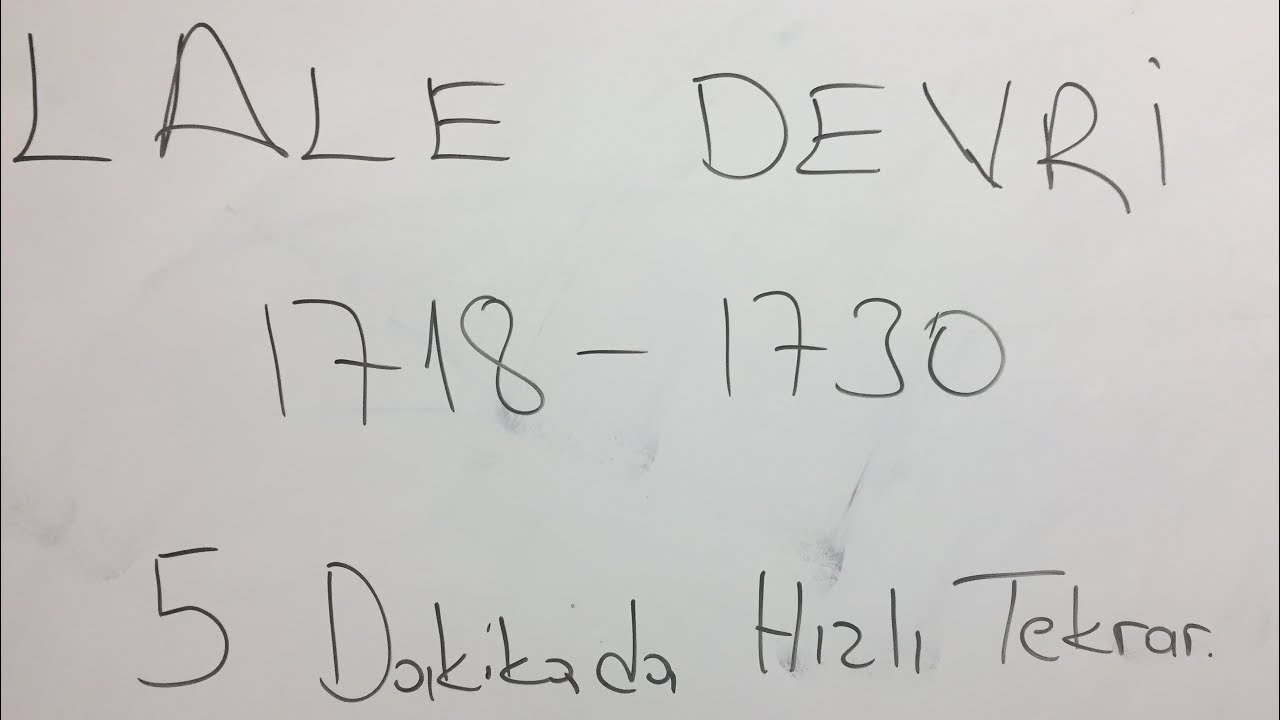 LALE DEVRİ
1718 - 1730
5 Dakikada Hızlı Tekrar.